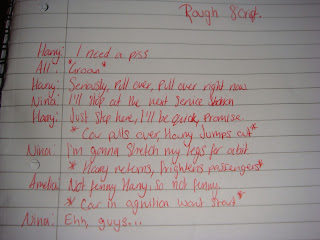 Rough Script.
Harry: I need a piss
All: *Groan*
Harry: Seriously, Pull over, Pull over right now
Nina: I'll stop at the next service station
Harry: Just stop here, I'll be quick, promise
*Car pulls over, Harry jumps out*
Nina: I'm gonna stretch my legs for a bit
*Harry returns, frightens passengers*
Amelia: Not funny Harry, so not funny.
*Car in ignition wont start*
Nina: Ehh, guys...